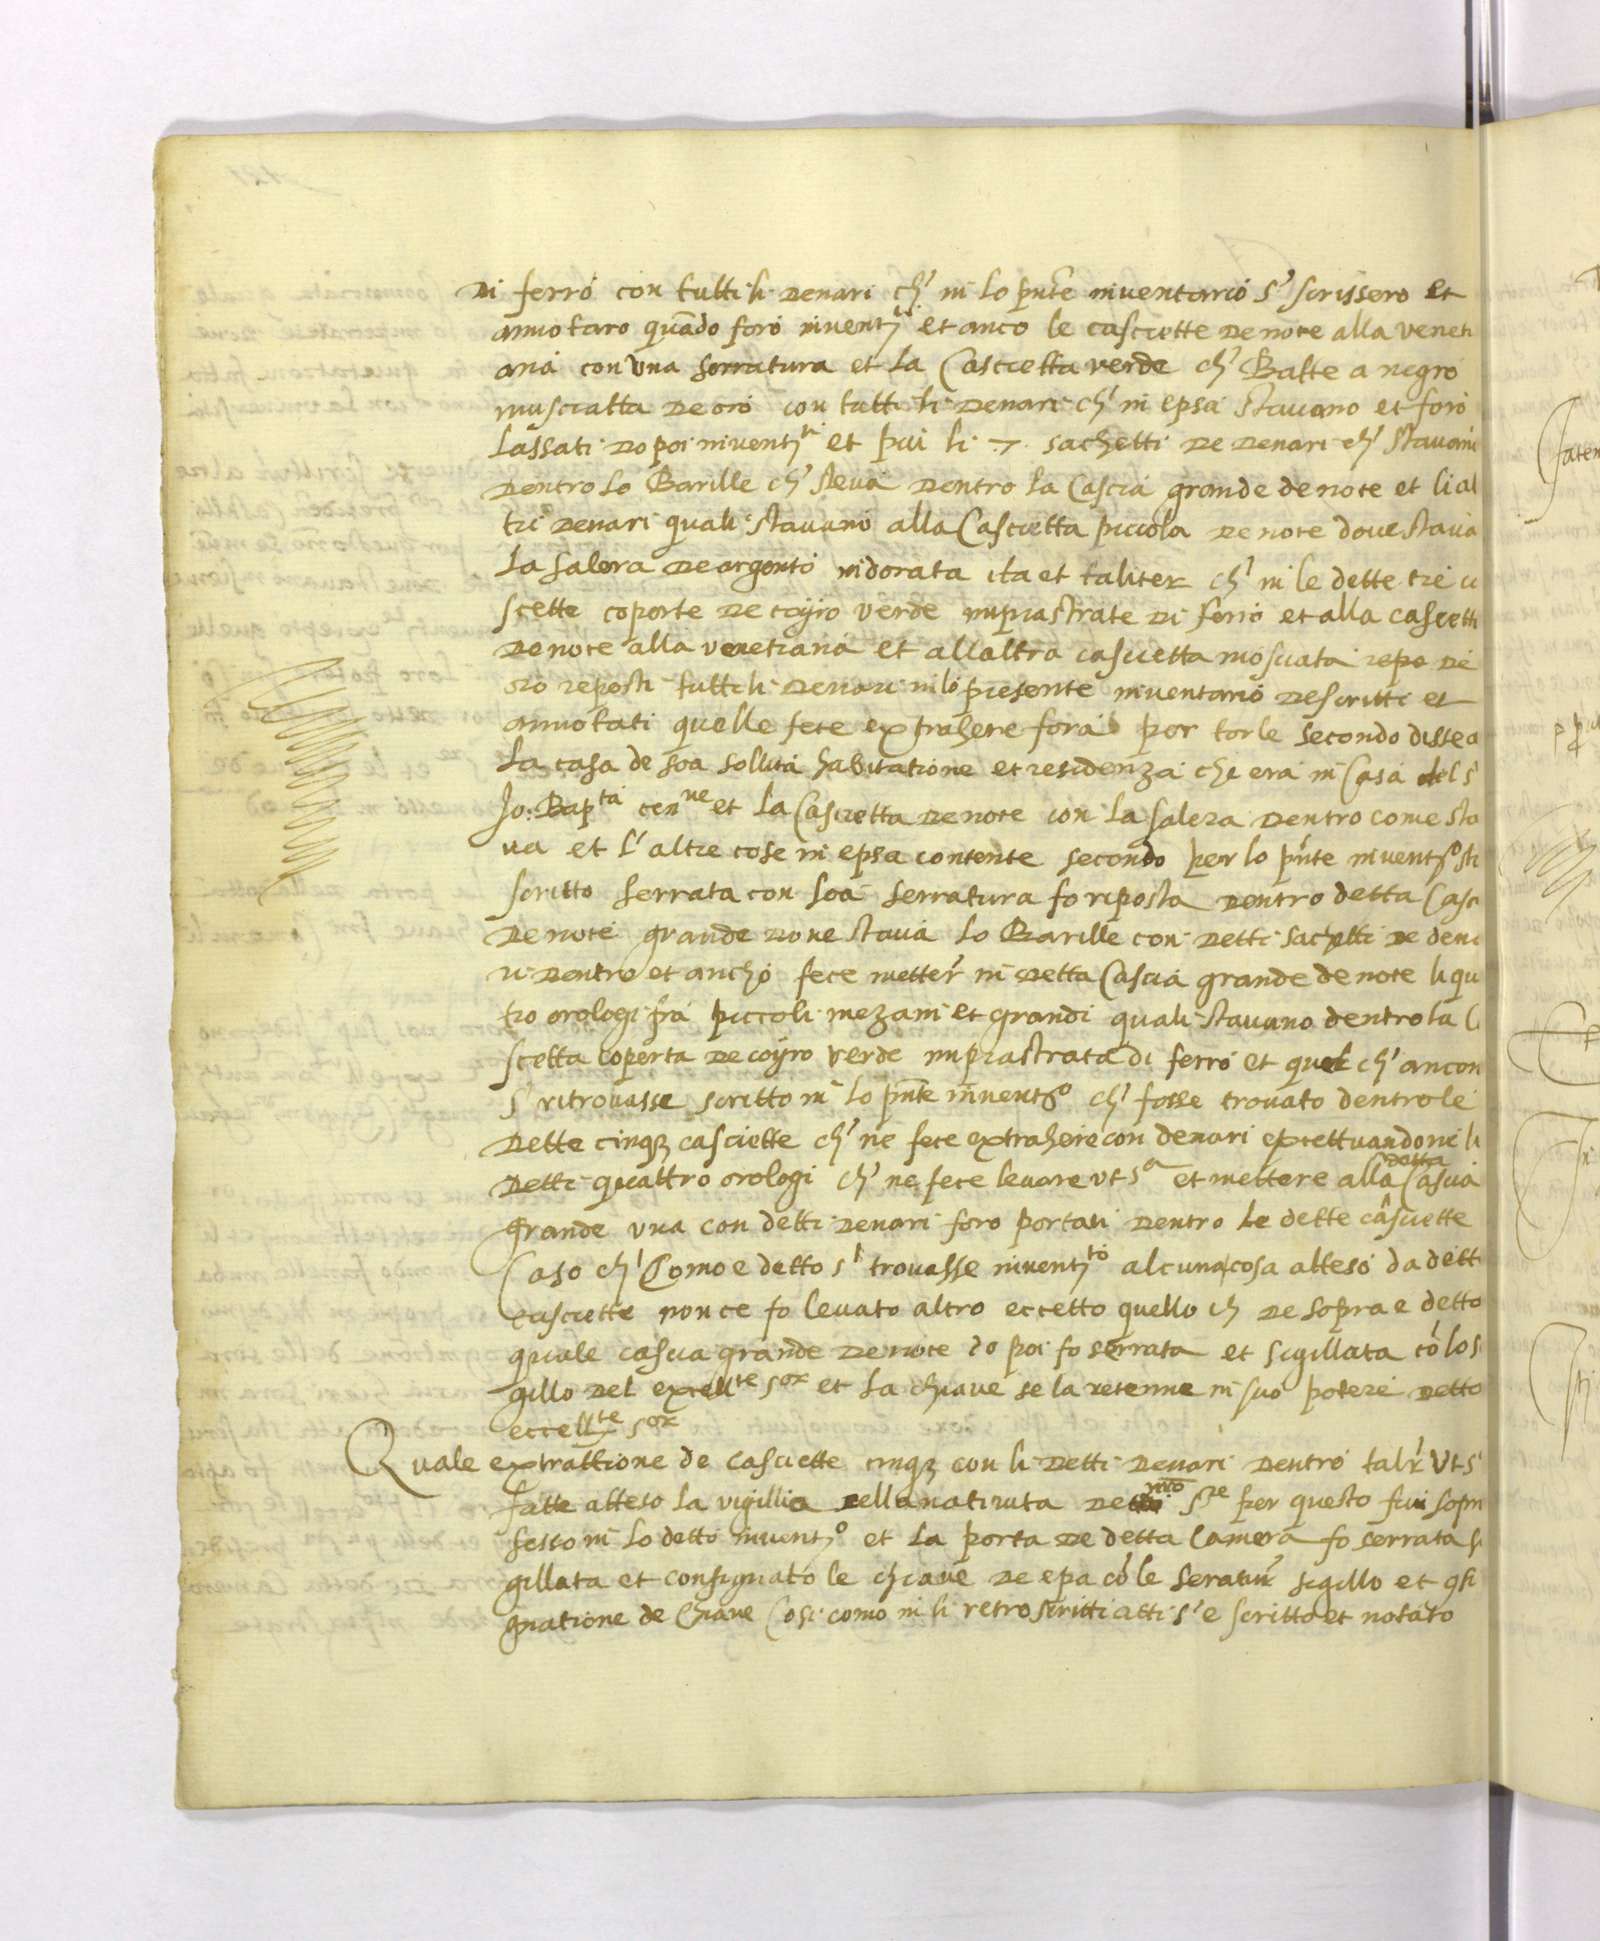 di ferro con tutti li denari ch' in lo pnte inventario s' scrissero et
annotaro quado foro inventti et anco le casciette de noce alla veneti
ana con una serratura et la Cascietta verde ch' Batte a negro
musciatta de oro con tutti li denari ch' in epsa stavano et foro
lassati dopoi inventti et pui li 7 sachetti de denari ch' stavano
dentro lo Barille ch' steva dentro la Cascia grande de noce et li al
tri denari quali stavano alla Cascietta piccola de noce dove stava
la salera de argento indorata ita et taliter ch' in le dette tre ca
scette coperte de coyro verde inpiastrate di ferro et alla cascett
de noce alla venetiana et all altra cascietta mosciata de
oro reposti tutti li denari in lo presente inventario descritti et
annotati quelle fece extrahere fora per torle secondo disse a
la casa de soa sollita habitatione et residenza che era in Casa del s'
Jo: Bapta cenne et la Cascietta de noce con la salera dentro come sta
va et l' altre cose in epsa contente secondo per lo pnte inventro sti
scritto serrata con soa serratura fo riposta dentro detta Casc
de noce grande dove stava lo Barille con detti sachetti de dena
ri dentro et ancho fece metter in detta Cascia grande de noce li qu
tro orologi fra piccoli mezani et grandi quali stavano dentro la C
scetta coperta de coyro verde inpiastrata di ferro et quel ch' ancor
s' ritrovasse scritto in lo pnte inventro ch' fosse trovato dentro le
dette cinq casciette ch' ne fece extrahere con denari excettuandone li
detti quattro orologi ch' ne fece levare ut sa et mettere alla detta Cascia
grande una con detti denari foro portati dentro le dette casciette
Caso ch' Como e detto s' trovasse inventto alcuna cosa atteso da dette
casciette non ce fo levato altro eccetto quello ch de sopra e detto
quale cascia grande de noce do poi fo serrata et sigillata co lo si
gillo del excellte sor et la chiave se la retenne in suo potere detto
eccellte sor
Quale extrattione de casciette cinq con li detti denari dentro talr ut s'
fatte atteso la vigillia della nativita de nro sre per questo fui sopra
sesso in lo detto inventro et la porta de detta Camera fo serrata si
gillata et consignato le chiave de epa co le seratur sigillo et csi
gnatione de chiave Cosi como in li retroscritti atti s' e scritto et notato